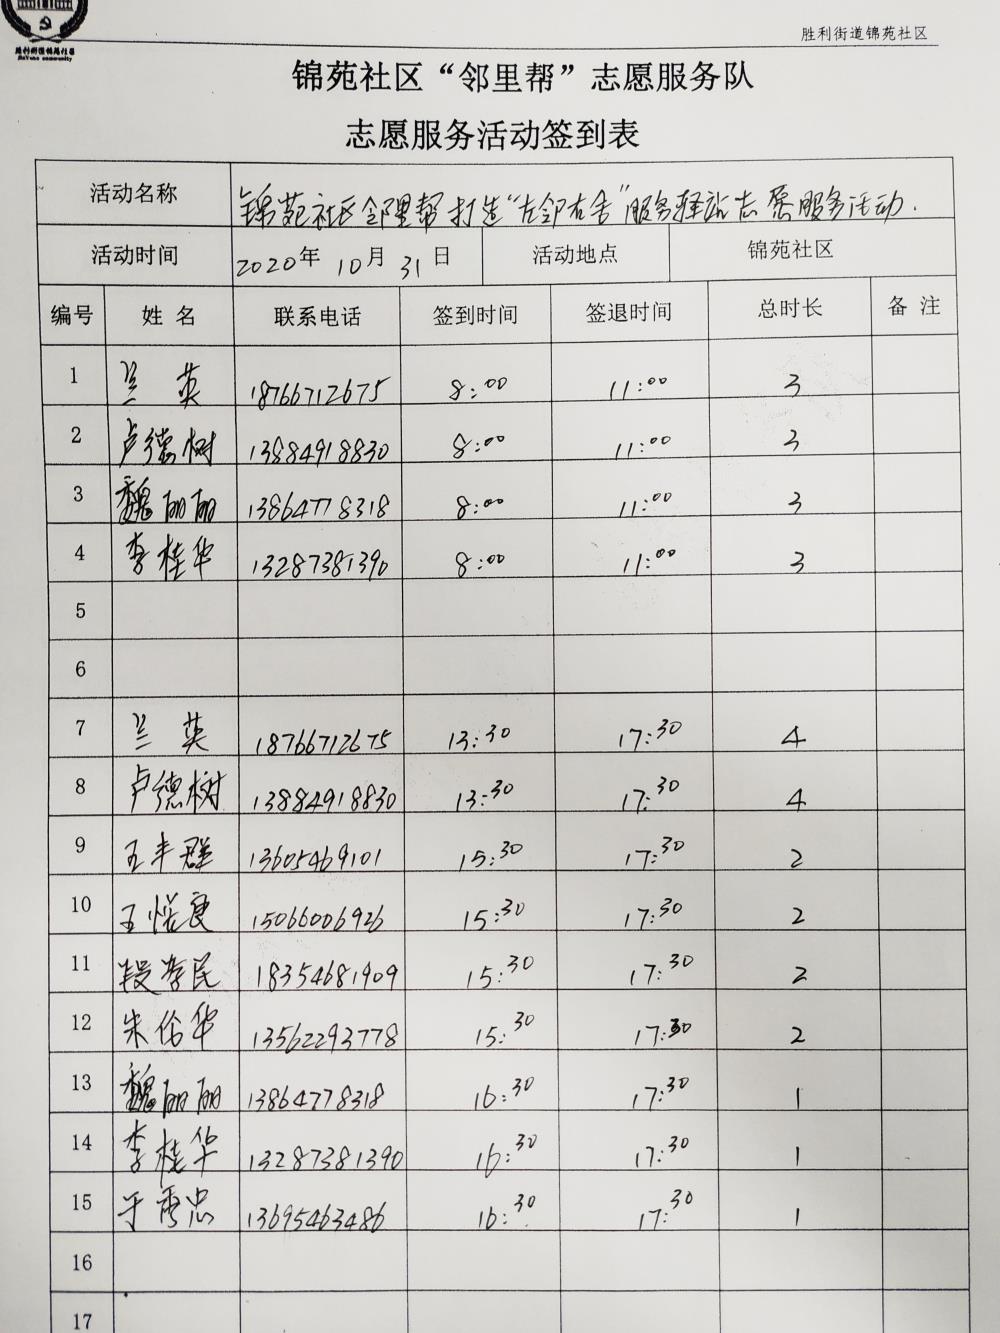 胜利街道锦苑社区
JinYuan community
胜利街道锦苑社区
锦苑社区“邻里帮”志愿服务队
志愿服务活动签到表
活动名称 锦苑社区邻里帮打造“左邻右舍”服务驿站志愿服务活动.
活动时间 2020年 10月 31日 活动地点 锦苑社区
编号 姓名 联系电话 签到时间 签退时间 总时长 备注
1 兰英 18766712675 8:00 11:00 3
2 卢德树 13884918830 8:00 11:00 3
3 魏丽丽 13864778318 8:00 11:00 3
4 李桂华 13287381390 8:00 11:00 3
5
6
7 兰英 18766712675 13:30 17:30 4
8 卢德树 13884918830 13:30 17:30 4
9 王丰群 13605469101 15:30 17:30 2
10 王良 15066006926 15:30 17:30 2
11 段孝民 18354681909 15:30 17:30 2
12 朱伦华 13562293778 15:30 17:30 2
13 魏丽丽 13864778318 16:30 17:30 1
14 李桂华 13287381390 16:30 17:30 1
15 于秀忠 13695463486 16:30 17:30 1
16
17